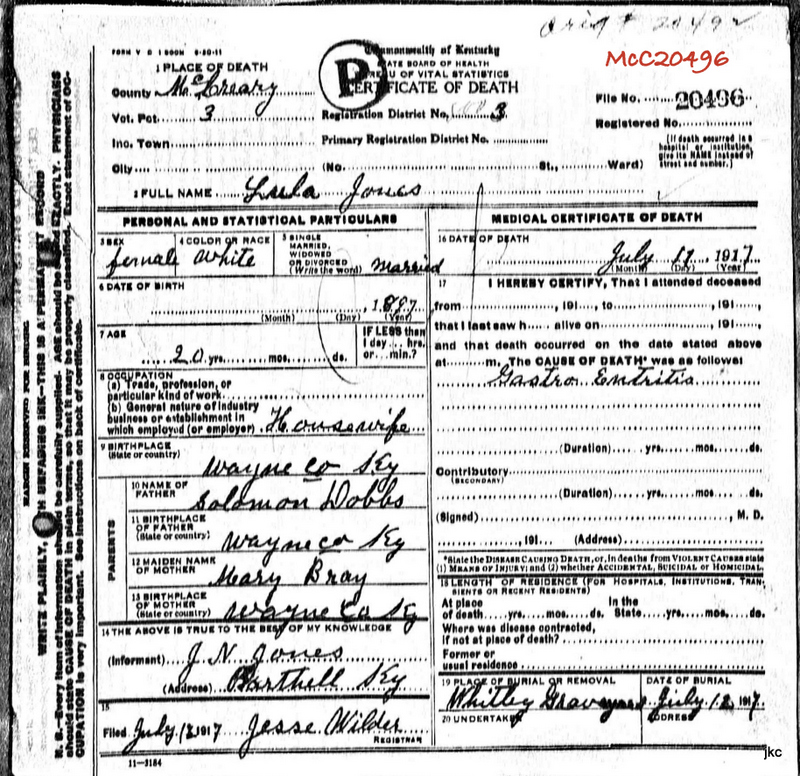 Orig # 20492
FORM V S 1 500M 8-20-11
Commonwealth of Kentucky
STATE BOARD OF HEALTH
BUREAU OF VITAL STATISTICS
CERTIFICATE OF DEATH
P
McC20496
1 PLACE OF DEATH
County McCreary
Vot. Pct. 3
Registration District No. 3
File No. 20496
Inc. Town
Primary Registration District No.
Registered No.
City (No. St., Ward)
(If death occurred in a
hospital or institution,
give its NAME instead of
street and number.)
2 FULL NAME Lula Jones
PERSONAL AND STATISTICAL PARTICULARS
3 SEX female
4 COLOR OR RACE White
5 SINGLE
MARRIED,
WIDOWED
OR DIVORCED
(Write the word) Married
6 DATE OF BIRTH
1887
(Month) (Day) (Year)
7 AGE
20 yrs. mos. ds.
IF LESS than
1 day hrs.
or min.?
8 OCCUPATION
(a) Trade, profession, or
particular kind of work
(b) General nature of industry
business or establishment in
which employed (or employer) Housewife
9 BIRTHPLACE
(State or country)
Wayne co Ky
PARENTS
10 NAME OF
FATHER
Solomon Dobbs
11 BIRTHPLACE
OF FATHER
(State or country) Wayne co Ky
12 MAIDEN NAME
OF MOTHER
Mary Bray
13 BIRTHPLACE
OF MOTHER
(State or country) Wayne Co Ky
14 THE ABOVE IS TRUE TO THE BEST OF MY KNOWLEDGE
(Informant) J. N. Jones
(Address) Barthell Ky
15
Filed July 12 1917 Jesse Wilder
REGISTRAR
11-3184
MEDICAL CERTIFICATE OF DEATH
16 DATE OF DEATH
July 11, 1917
(Month) (Day) (Year)
17 I HEREBY CERTIFY, That I attended deceased
from , 191 , to , 191 ,
that I last saw h alive on , 191 ,
and that death occurred on the date stated above
at m. The CAUSE OF DEATH* was as follows:
Gastro Entritis
(Duration) yrs. mos. ds.
Contributory
(SECONDARY)
(Duration) yrs. mos. ds.
(Signed) , M. D.
, 191 (Address)
*State the DISEASE CAUSING DEATH, or, in deaths from VIOLENT CAUSES state
(1) MEANS OF INJURY; and (2) whether ACCIDENTAL, SUICIDAL or HOMICIDAL.
18 LENGTH OF RESIDENCE (FOR HOSPITALS, INSTITUTIONS, TRAN-
SIENTS OR RECENT RESIDENTS)
At place In the
of death yrs. mos. ds. State yrs. mos. ds.
Where was disease contracted,
if not at place of death?
Former or
usual residence
19 PLACE OF BURIAL OR REMOVAL
Whitley
DATE OF BURIAL
July 12, 1917
20 UNDERTAKER
ADDRESS
MARGIN RESERVED FOR BINDING
WRITE PLAINLY, WITH UNFADING INK—THIS IS A PERMANENT RECORD
N. B.—Every item of information should be carefully supplied. AGE should be stated EXACTLY. PHYSICIANS
should state CAUSE OF DEATH in plain terms, so that it may be properly classified. Exact statement of OC-
CUPATION is very important. See instructions on back of certificate.
jkc